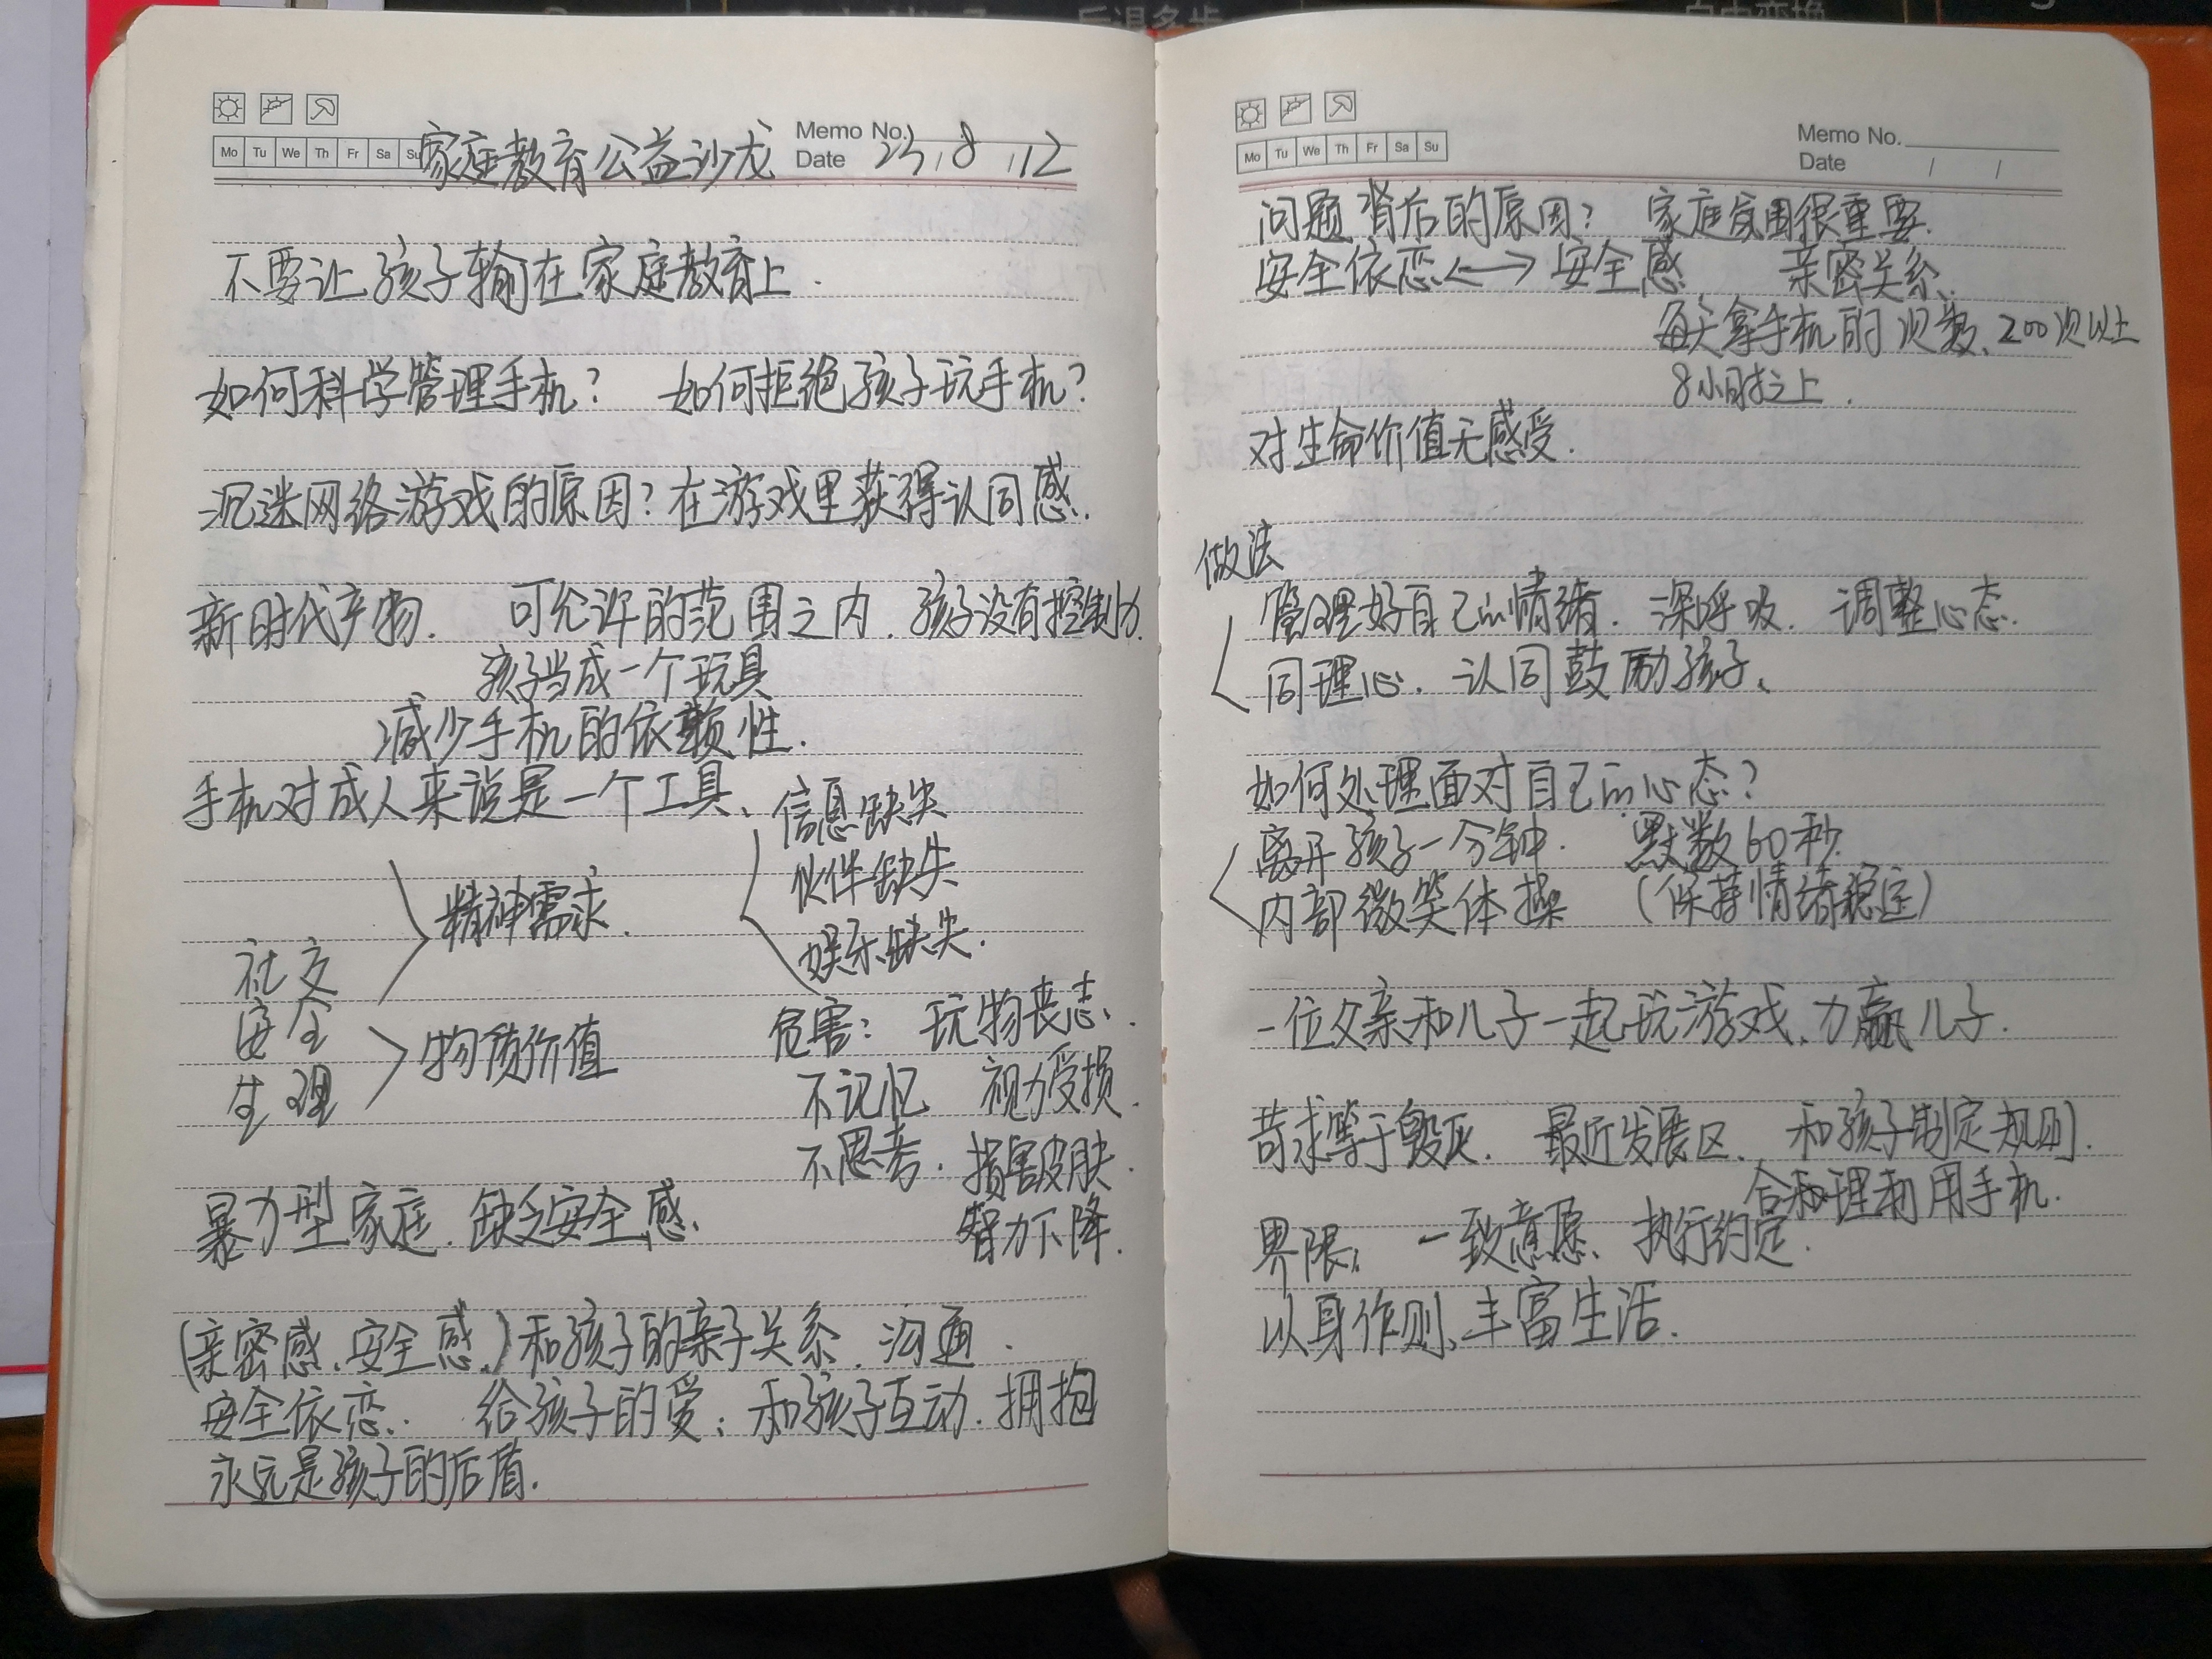 后退多步
自由变换
Memo No.
Mo Tu We Th Fr Sa Su
家庭教育公益沙龙
Date 23/8/12
不要让孩子输在家庭教育上.
如何科学管理手机? 如何拒绝孩子玩手机?
沉迷网络游戏的原因?在游戏里获得认同感.
新时代产物. 可允许的范围之内.孩子没有控制力
孩子当成一个玩具
减少手机的依赖性.
手机对成人来说是一个工具、
信息缺失
伙伴缺失
娱乐缺失.
精神需求.
社交
安全
生理
物质价值
危害: 玩物丧志.
不记忆 视力受损.
不思考. 损害皮肤.
智力下降.
暴力型家庭.缺乏安全感、
(亲密感、安全感、)和孩子的亲子关系.沟通.
安全依恋. 给孩子的爱:和孩子互动.拥抱
永远是孩子的后盾.
Mo Tu We Th Fr Sa Su
Memo No.
Date / /
问题背后的原因? 家庭氛围很重要.
安全依恋<—>安全感 亲密关系、
每天拿手机的次数、200次以上
8小时之上.
对生命价值无感受.
做法
管理好自己的情绪.深呼吸. 调整心态.
同理心. 认同鼓励孩子、
如何处理面对自己的心态?
离开孩子一分钟. 默数60秒.
内部微笑体操 (保持情绪稳定)
一位父亲和儿子一起玩游戏、力赢儿子.
苛求等于毁灭. 最近发展区、和孩子制定规则.
合理利用手机.
界限: 一致意愿、执行约定.
以身作则、丰富生活.